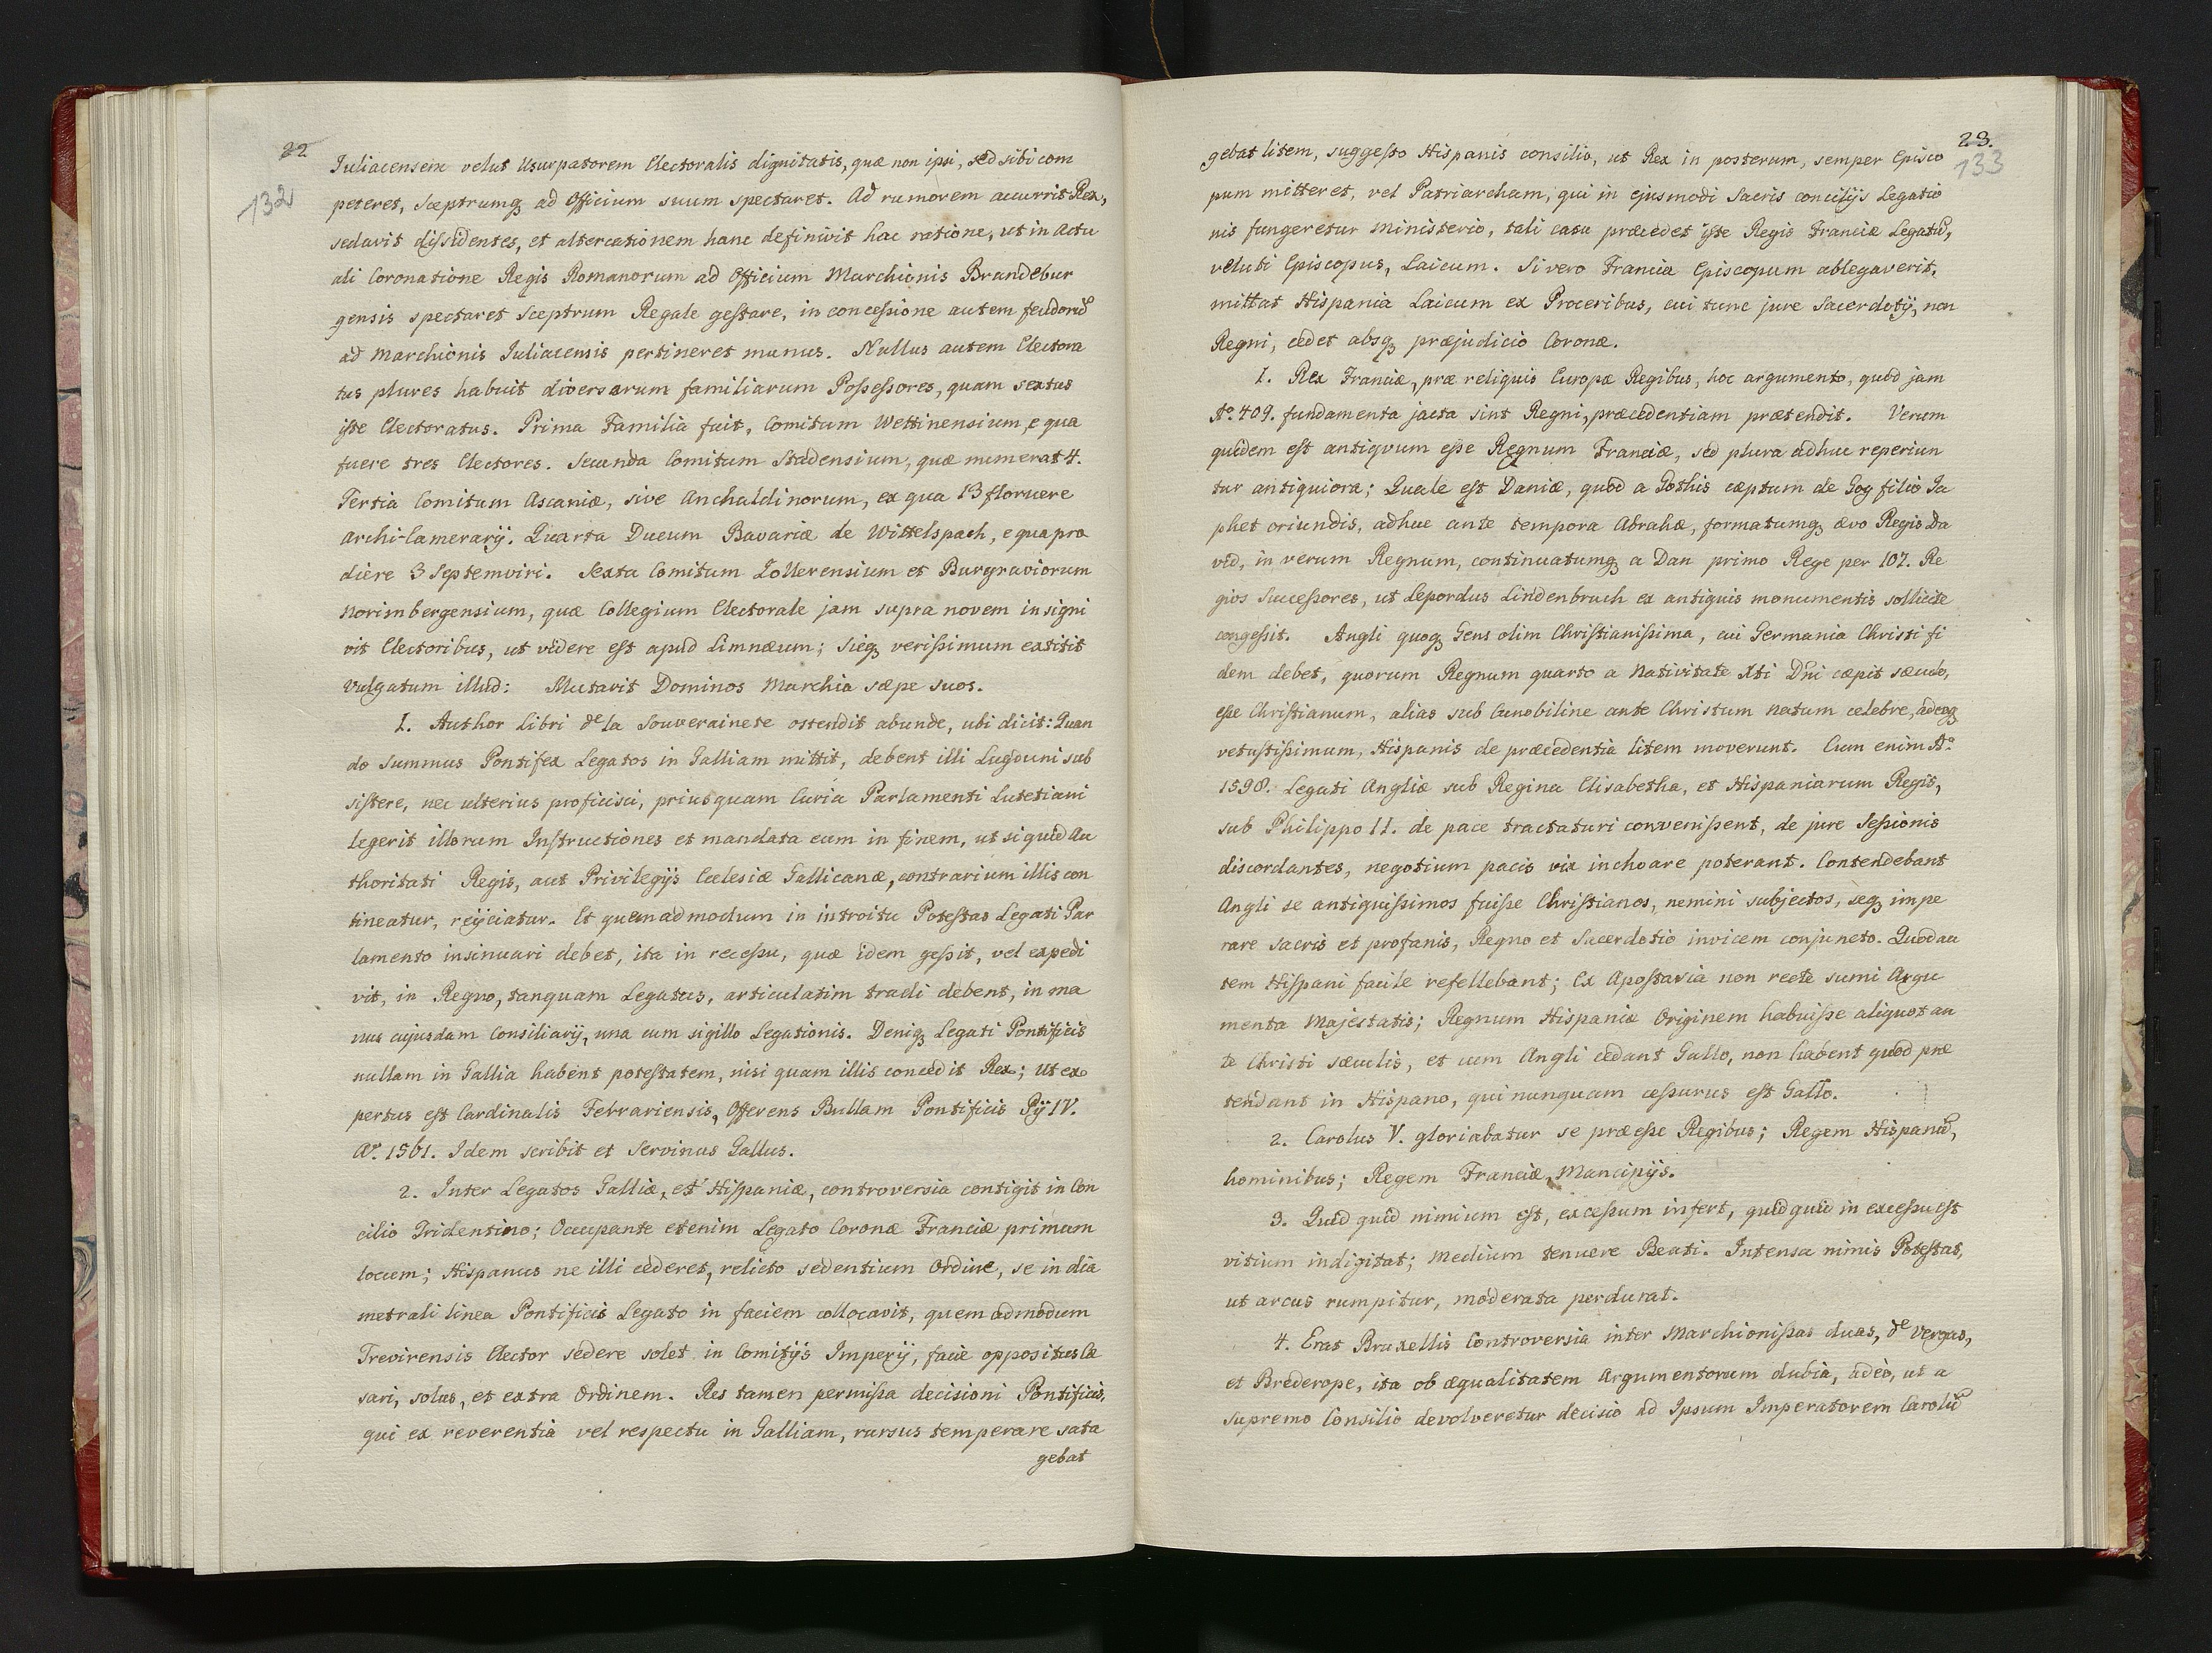 22
132
Juliacensem velut Usurpatorem Electoralis dignitatis, quæ non ipsi, sed sibi com
peteret, Sceptrumq; ad Officium suum spectaret. Ad rumorem accurrit Rex,
sedavit dissidentes, et altercationem hanc definivit hac ratione, ut in actu
ali Coronatione Regis Romanorum ad Officium Marchionis Brandebur
gensis spectaret Sceptrum Regale gestare, in concessione autem feudorũ
ad Marchionis Juliacensis pertineret munus. Nullus autem Electora
tus plures habuit diversarum familiarum Possessores, quam sextus
iste Electoratus. Prima Familia fuit, Comitum Wettinensium, e qua
fuere tres Electores. Secunda Comitum Stadensium, quæ numerat 4.
Tertia Comitum Ascaniæ, sive Anchaldinorum, ex qua 13 floruere
Archi-Camerarij. Quarta Ducum Bavariæ de Wittelspach, e qua pro
diere 3 Septemviri. Sexta Comitum Zollerensium et Burgraviorum
Norimbergensium, quæ Collegium Electorale jam supra novem insigni
vit Electoribus, ut videre est apud Limnæum; Sicq; verissimum extitit
vulgatum illud: Mutavit Dominos Marchia sæpe suos.
1. Author Libri de la Souverainete ostendit abunde, ubi dicit: Quan
do Summus Pontifex Legatos in Galliam mittit, debent illi Lugduni sub
sistere, nec ulterius proficisci, priusquam Curia Parlamenti Lutetiani
legerit illorum Instructiones et mandata eum in finem, ut si quid Au
thoritati Regis, aut Privilegijs Ecclesiæ Gallicanæ, contrarium illis con
tineatur, reijciatur. Et quemadmodum in introitu Potestas Legati Par
lamento insinuari debet, ita in recessu, quæ idem gessit, vel expedi
vit, in Regno, tanquam Legatus, articulatim tradi debent, in ma
nus cujusdam Consiliarij, una cum sigillo Legationis. Deniq; Legati Pontificis
nullam in Gallia habent potestatem, nisi quam illis concedit Rex; Ut ex
pertus est Cardinalis Ferrariensis, Offerens Bullam Pontificis Pij IV.
Aº. 1561. Idem scribit et Servinus Gallus.
2. Inter Legatos Galliæ, et Hispaniæ, controversia contigit in Con
cilio Tridentino; Occupante etenim Legato Coronæ Franciæ primum
locum; Hispanus ne illi cederet, relicto sedentium Ordine, se in dia
metrali linea Pontificis Legato in faciem collocavit, quemadmodum
Trevirensis Elector sedere solet in Comitijs Imperij, facie oppositus Cæ
sari, solus, et extra Ordinem. Res tamen permissa decisioni Pontificis,
qui ex reverentia vel respectu in Galliam, rursus temperare sata
gebat
23.
133
gebat litem, suggesto Hispanis consilio, ut Rex in posterum, semper Episco
pum mitteret, vel Patriarcham, qui in ejusmodi Sacris concilijs Legatio
nis fungeretur ministerio, tali casu præcedet iste Regis Franciæ Legatũ,
veluti Episcopus, Laicum. Si vero Francia Episcopum ablegaverit,
mittat Hispania Laicum ex Proceribus, cui tunc jure Sacerdotij, non
Regni, cedet absq; præjudicio Coronæ.
1. Rex Franciæ, præ reliquis Europæ Regibus, hoc argumento, quod jam
Aº. 409. fundamenta jacta sint Regni, præcedentiam prætendit. Verum
quidem est antiqvum esse Regnum Franciæ, sed plura adhuc reperiun
tur antiquiora; Quale est Daniæ, quod a Gothis cæptum de Gog filio Ja
phet oriundis, adhuc ante tempora Abrahæ, formatumq; ævo Regis Da
vid, in verum Regnum, continuatumq; a Dan primo Rege per 107. Re
gios Successores, ut Lepordus Lindenbruch ex antiquis monumentis sollicite
congessit. Angli quoq; Gens olim Christianissima, cui Germania Christi fi
dem debet, quorum Regnum quarto a Nativitate Xti Dñi cæpit sæculo,
esse Christianum, alias sub Cunobiline ante Christum natum celebre, adeoq;
vetustissimum, Hispanis de præcedentia litem moverunt. Cum enim Aº.
1598. Legati Angliæ sub Regina Elisabetha, et Hispaniarum Regis,
sub Philippo II. de pace tractaturi convenissent, de jure Sessionis
discordantes, negotium pacis vix inchoare poterant. Contendebant
Angli se antiquissimos fuisse Christianos, nemini subjectos, seq; impe
rare sacris et profanis, Regno et Sacerdotio invicem conjuncto. Quod au
tem Hispani facile refellebant; Ex Apostasia non recte sumi Argu
menta Majestatis; Regnum Hispaniæ Originem habuisse aliquot an
te Christi sæculis, et cum Angli cedant Gallo, non habent quod præ
tendant in Hispano, qui nunquam cessurus est Gallo.
2. Carolus V. gloriabatur se præesse Regibus; Regem Hispanũ,
hominibus; Regem Franciæ, Mancipijs.
3. Quid quid nimium est, excessum infert, quid quid in excessu est
vitium indigitat; Medium tenuere Beati. Intensa nimis Potestas,
ut arcus rumpitur, moderata perdurat.
4. Erat Bruxellis Controversia inter Marchionissas duas, de Vergas,
et Brederope, ita ob æqualitatem Argumentorum dubia, adeo, ut a
supremo Consilio devolveretur decisio ad Ipsum Imperatorem Carolũ